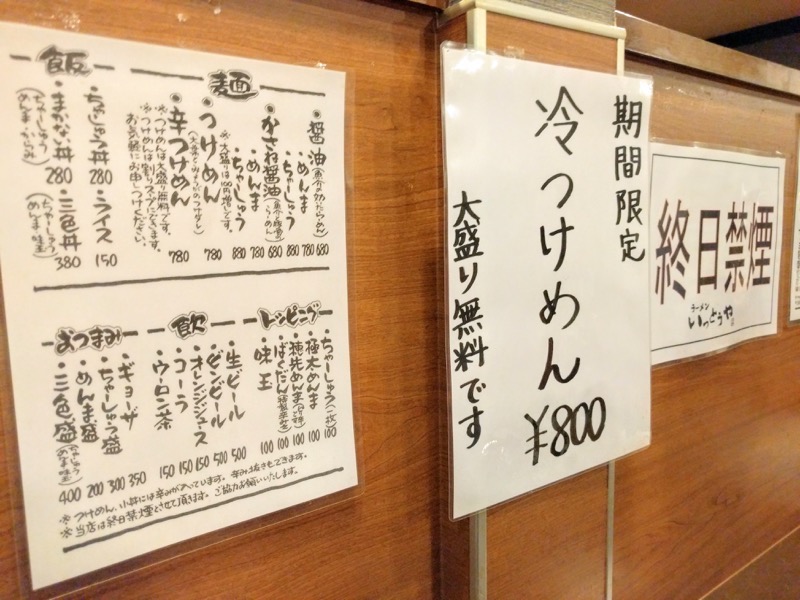 麺
・醤油(魚介の効いたらぁめん) 680
・めんま 780
・ちゃーしゅう 880
・かさね醤油(魚介+豚骨らぁめん) 680
・めんま 780
・ちゃーしゅう 880
・つけめん 780
※大盛りは100円増しです。
・辛つけめん 780
※つけめんは大盛り無料です。
※つけめんは割りスープにできます。
お気軽にお申しつけください。
飯
・ちゃーしゅう丼 280
・ライス 150
・まかない丼 280
(ちゃーしゅう
めんま・からみ)
・三色丼 380
(ちゃーしゅう
めんま 味玉)
トッピング
・ちゃーしゅう(一枚) 100
・極太めんま 100
・穂先めんま 100
・ばくだん 100
・味玉 100
飲
・生ビール 500
・ビンビール 500
・オレンジジュース 150
・コーラ 150
・ウーロン茶 150
おつまみ
・ギョーザ 350
・ちゃーしゅう盛 300
・めんま盛 200
・三色盛 400
(ちゃーしゅう
めんま 味玉)
※つけめん、小丼には辛みが入っています。辛み抜きもできます。
※当店は終日禁煙とさせて頂きます。ご協力お願いいたします。
期間限定
冷つけめん
¥800
大盛り無料です
終日禁煙
ラーメン
いっとうや